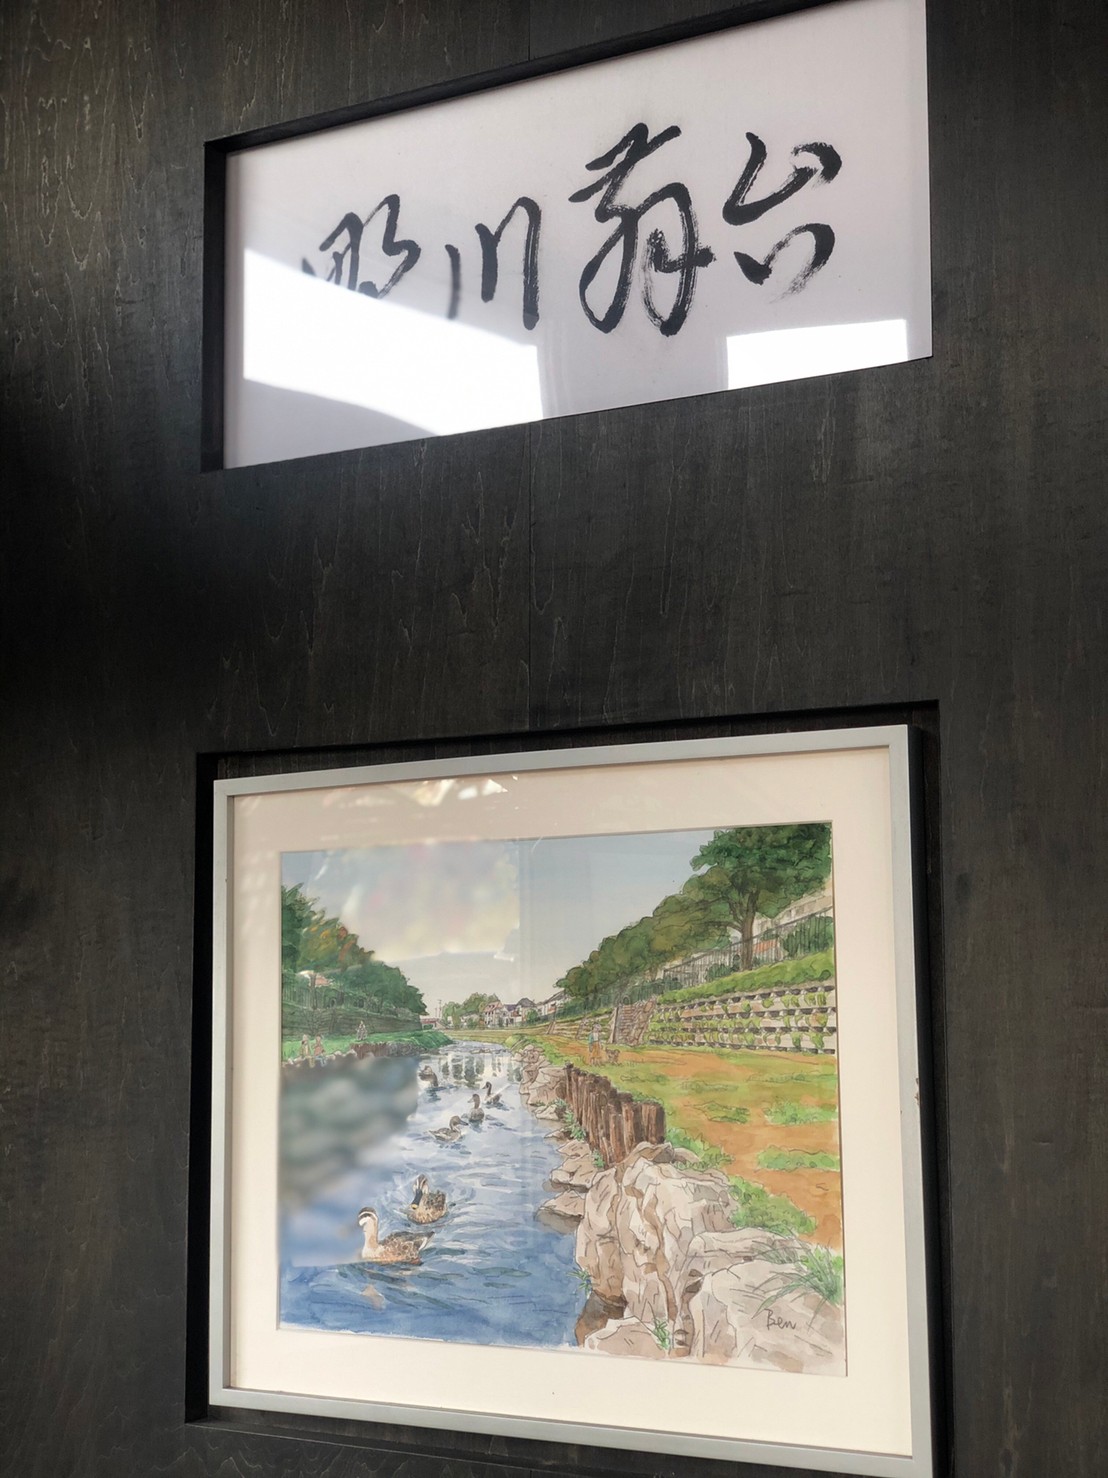 野川舞台
Ben